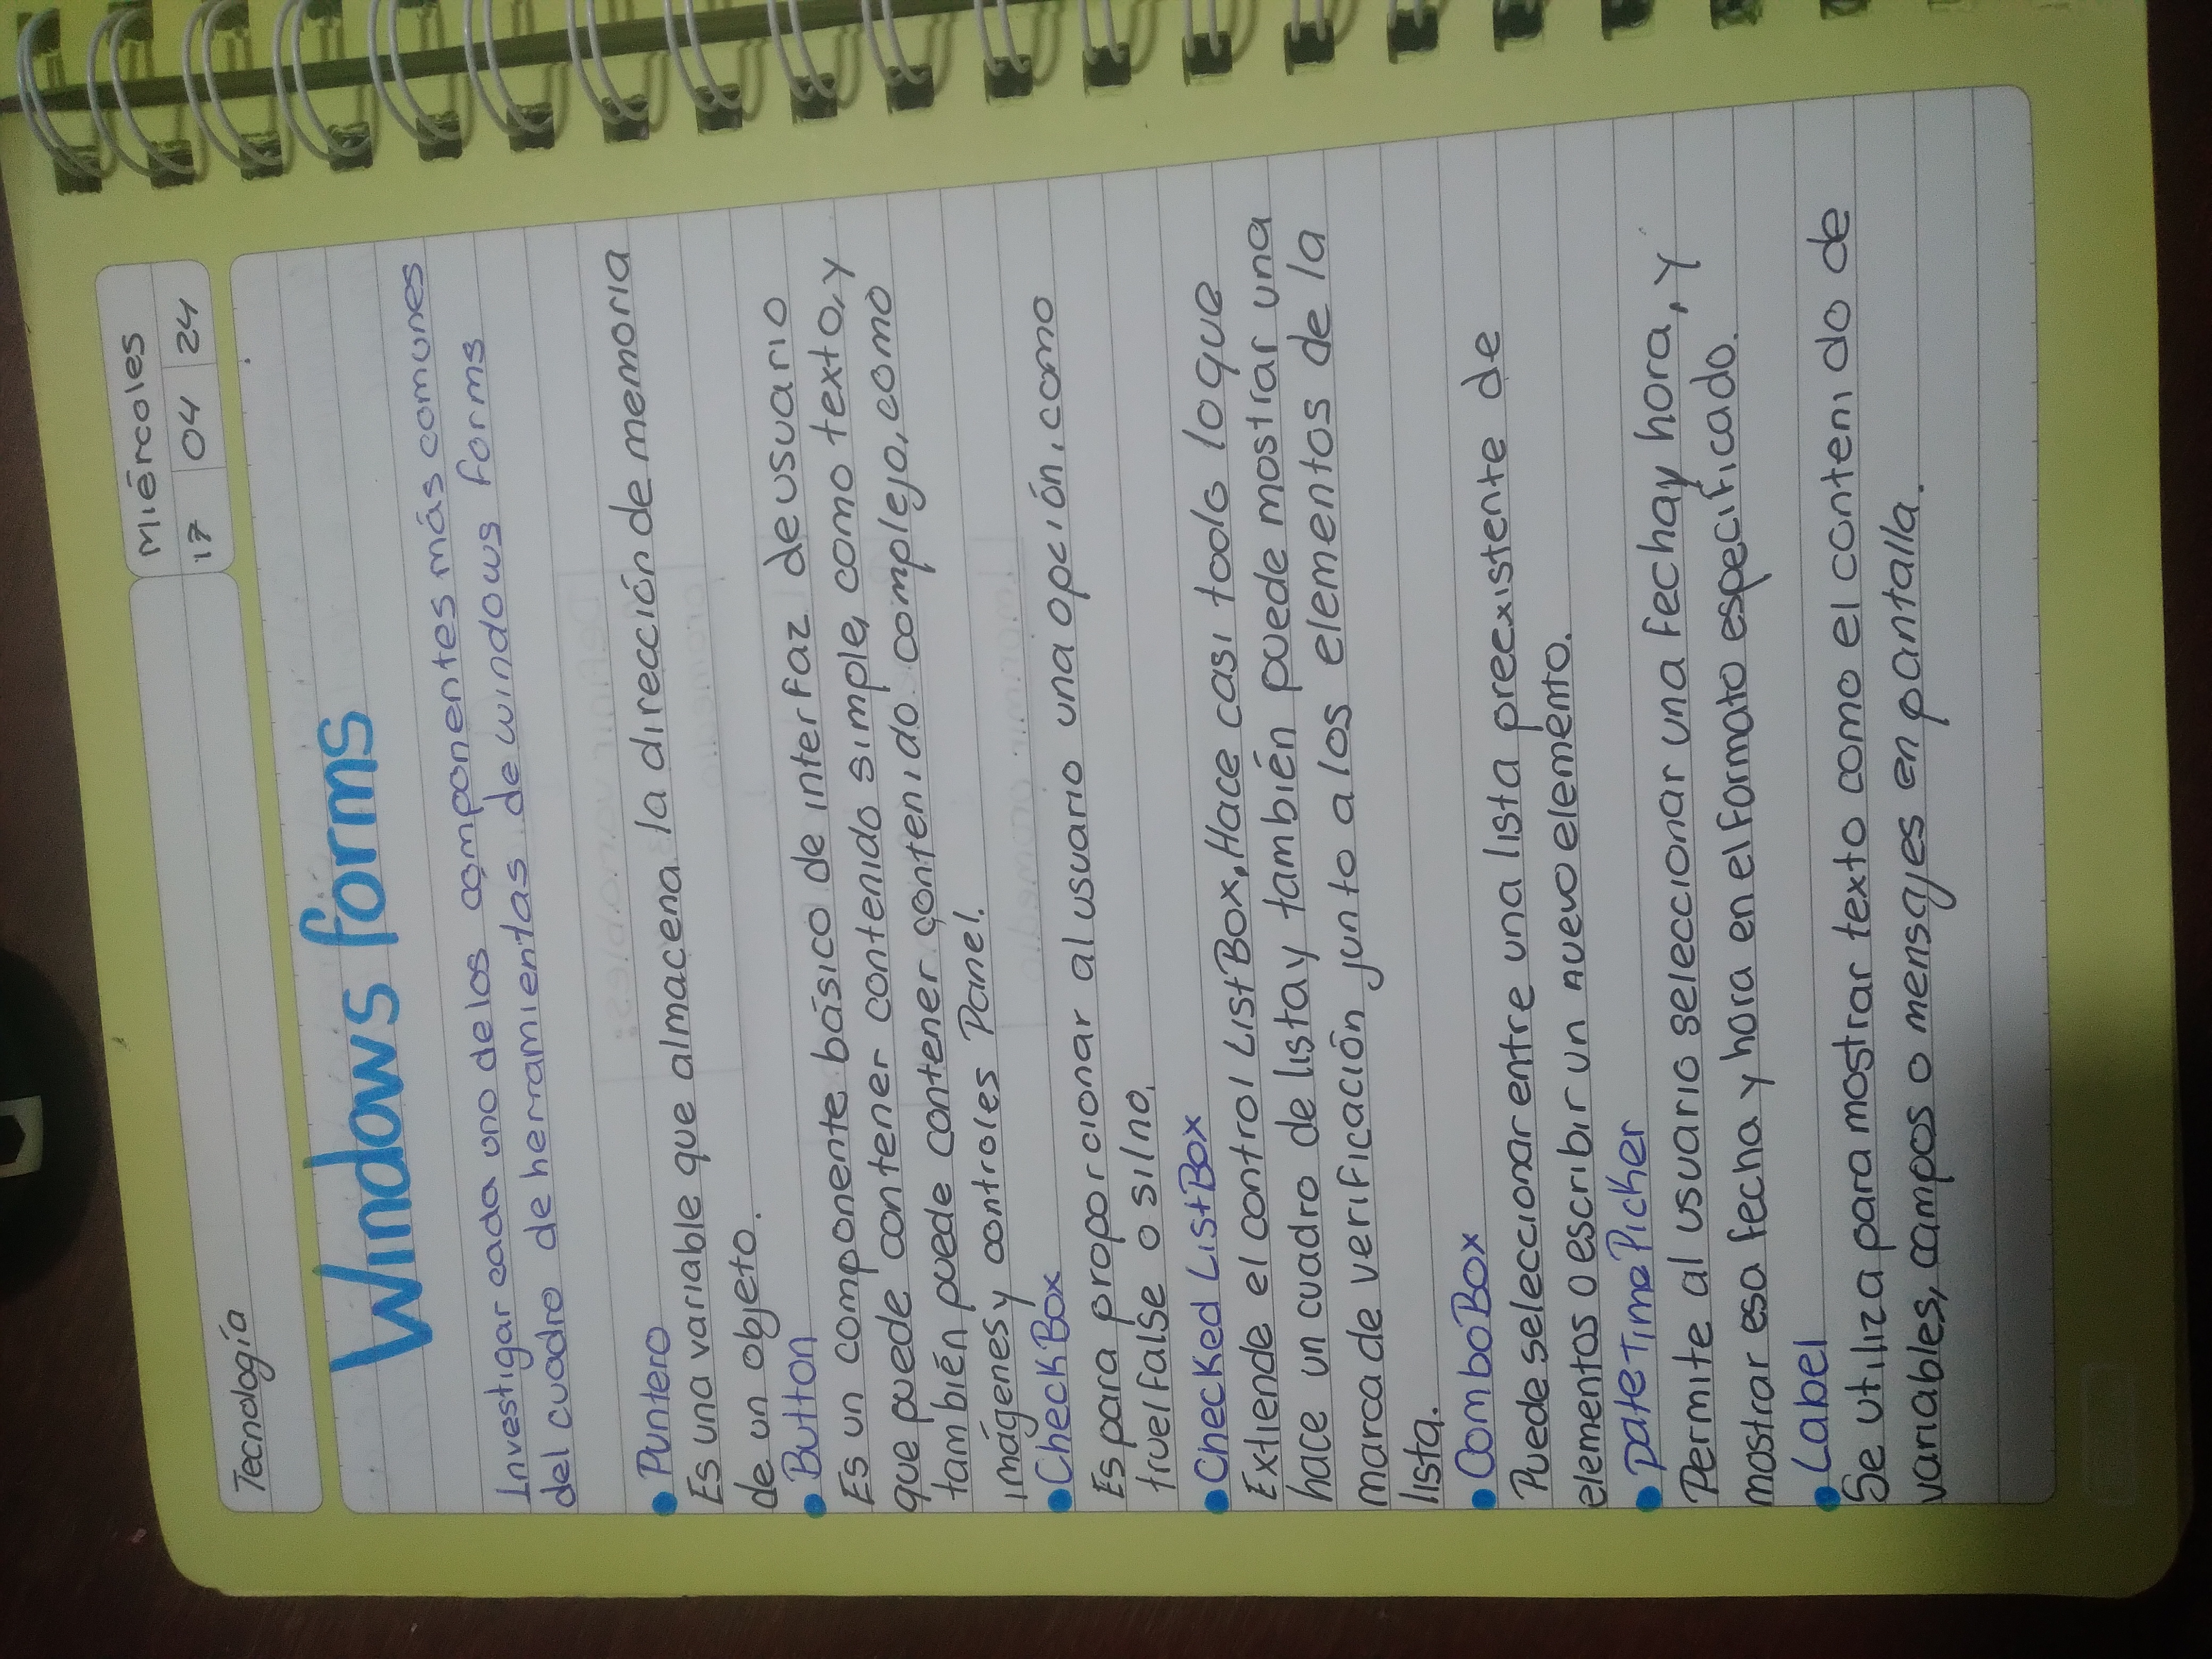 Tecnología
Miércoles
17 04 24
Windows forms
Investigar cada uno de los componentes más comunes
del cuadro de herramientas de windows forms
• Puntero
Es una variable que almacena la dirección de memoria
de un objeto.
• Button
Es un componente básico de interfaz de usuario
que puede contener contenido simple, como texto, y
también puede contener contenido complejo, como
imágenes y controles Panel.
• CheckBox
Es para proporcionar al usuario una opción, como
true/false o si/no.
• Checked ListBox
Extiende el control ListBox, Hace casi todo lo que
hace un cuadro de lista y también puede mostrar una
marca de verificación junto a los elementos de la
lista.
• ComboBox
Puede seleccionar entre una lista preexistente de
elementos o escribir un nuevo elemento.
• DateTimePicker
Permite al usuario seleccionar una fecha y hora, y
mostrar esa fecha y hora en el formato especificado.
• Label
Se utiliza para mostrar texto como el contenido de
variables, campos o mensajes en pantalla.